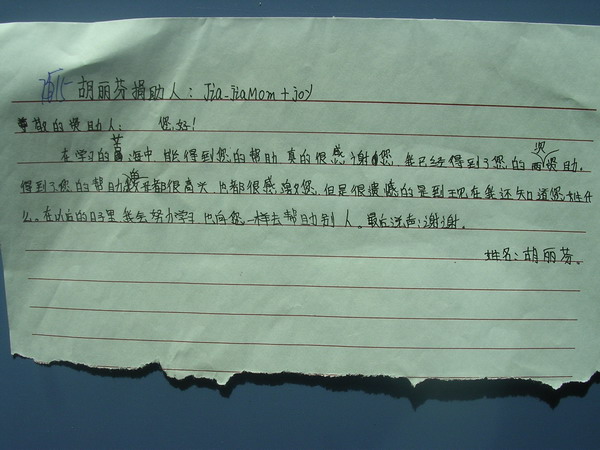 胡丽芬捐助人：Jia-jiaMom+joy
尊敬的资助人： 您好！
在学习的苦海中能得到您的帮助真的很感谢您，我已经得到了您的两次资助，
得到了您的帮助我 都很高兴也都很感 您，但是很遗憾的是到现在我还知道您姓什
么。在以后的日子里我会努力学习也向您一样去帮助别人。最后说声：谢谢。
姓名：胡丽芬。